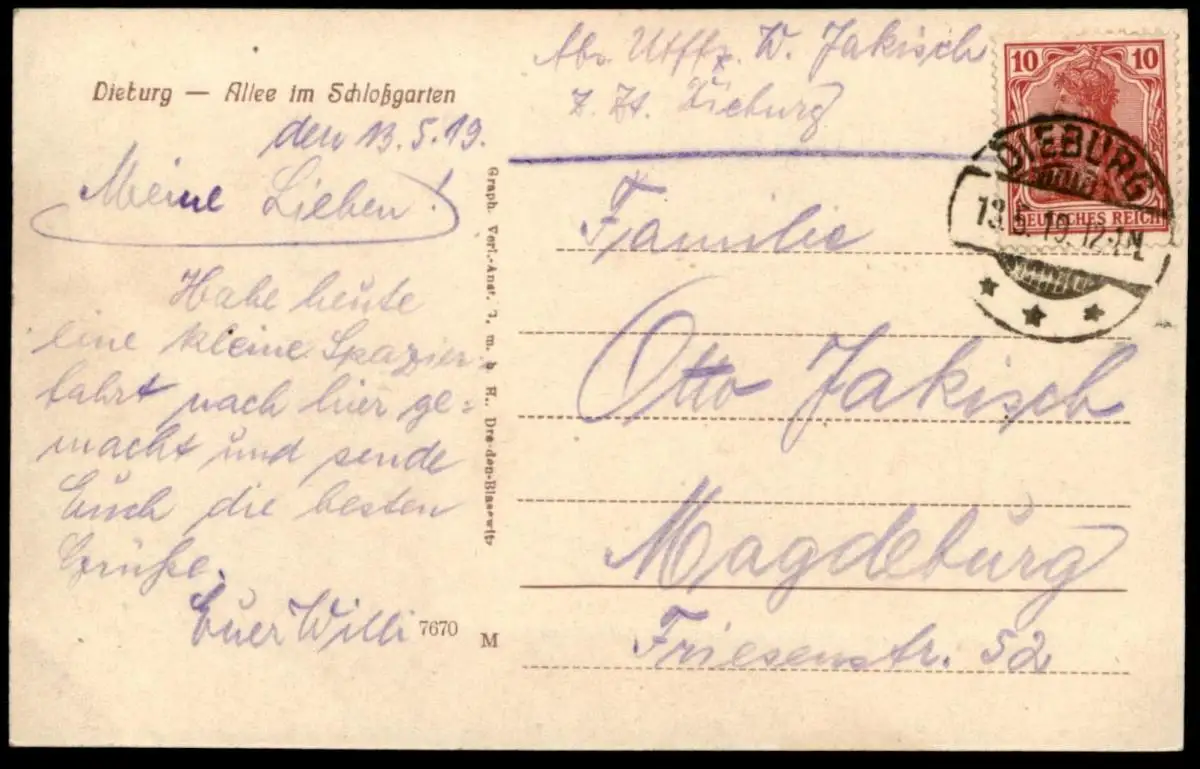 Dieburg — Allee im Schloßgarten
den 13.5.19.
Meine Lieben!
Habe heute
eine kleine Spazier-
fahrt nach hier ge=
macht und sende
Euch die besten
Grüße.
Euer Willi
7670
M
Graph. Verl.-Anst. G. m. b H., Dresden-Blasewitz
Abs. Utffz. W. Jakisch
z. Zt. Dieburg
10 10
DEUTSCHES REICH
DIEBURG
13.5.19.12-1N
Familie
Otto Jakisch
Magdeburg
Friesenstr. 52